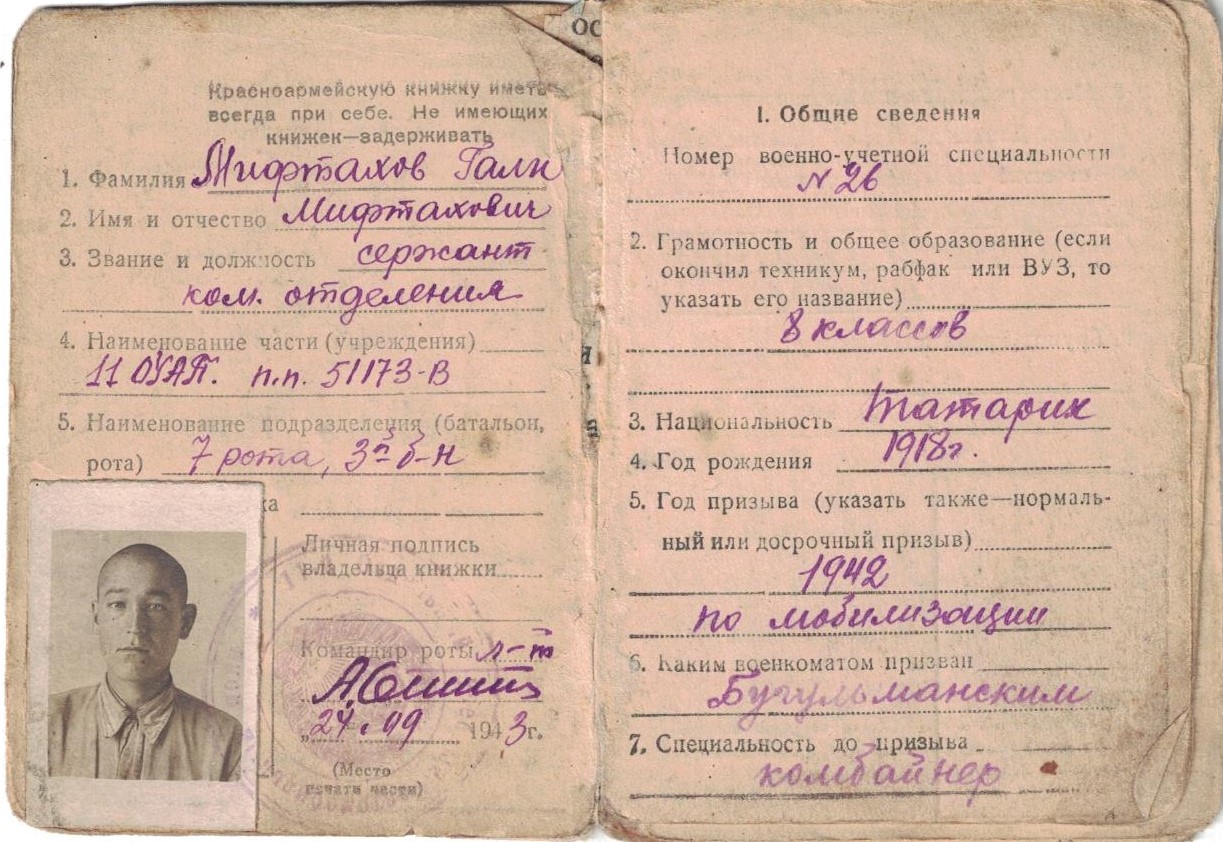 Красноармейскую книжку иметь
всегда при себе. Не имеющих
книжек—задерживать
1. Фамилия Мифтахов Гали
2. Имя и отчество Мифтахович
3. Звание и должность сержант
ком. отделения
4. Наименование части (учреждения)
11 ОУАП. п.п. 51173-В
5. Наименование подразделения (батальон,
рота) 7 рота, 3й б-н
ка
Личная подпись
владельца книжки
Командир роты л-т
„24.09 1943г.
(Место
печати части)
ОС
I. Общие сведения
Номер военно-учетной специальности
N 26
2. Грамотность и общее образование (если
окончил техникум, рабфак или ВУЗ, то
указать его название)
8 классов
3. Национальность татарин
4. Год рождения 1918г.
5. Год призыва (указать также—нормаль-
ный или досрочный призыв)
1942
по мобилизации
6. Каким военкоматом призван
Бугульманским
7. Специальность до призыва
комбайнер